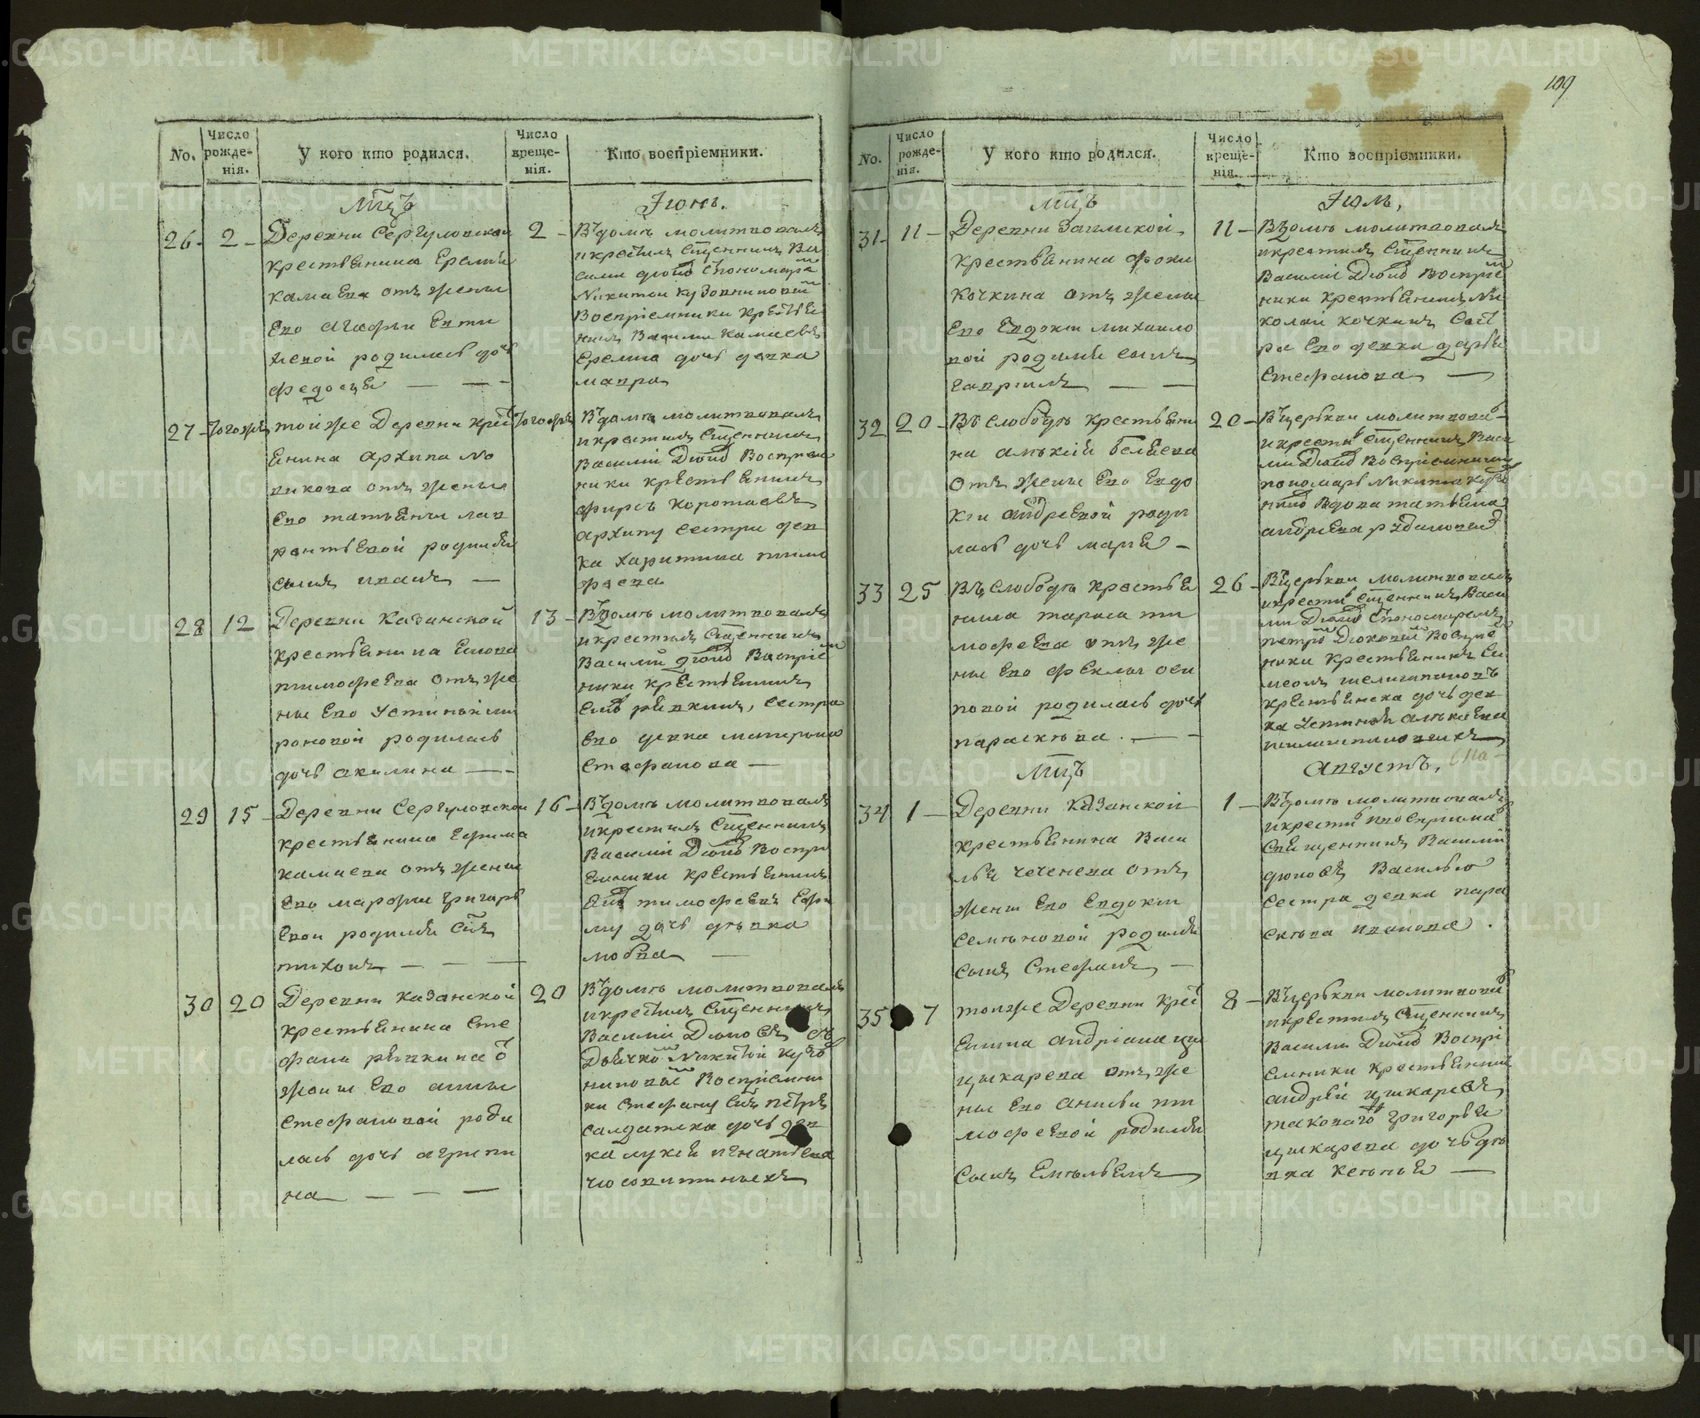 109
No.
Число рожде-нія.
У кого кто родился.
Число креще-нія.
Кто воспріемники.
Мцъ
Іюнь.
26
2
Деревни Сергуловской
крестьянина Еремея
камаева отъ жены
Его агафьи Евти
хеевой родилась дочь
федосья
2
Въ домъ молитвовалъ
и крестилъ Сщенникъ Ва
Никитою кузовниковым
Воспріемники крестья
нинъ камаевъ
Еремея дочь девка
мавра
27
Тогожъ
тойже Деревни крес
янина архипа но
викова отъ жены
Его татьяны лав
рентьевой родился
сынъ иванъ
Тогожъ
Въ домъ молитвовалъ
и крестилъ Сщенникъ
Василій Дюков Воспріем
ники крестьянинъ
фирсъ коротаевъ
архипу сестра дев
ка харитина тимо
феева
28
12
Деревни Казанской
крестьянина
тимофеева отъ же
ны Его Устиньи ми
роновой родилась
дочь акилина
13
Въ домъ молитвовалъ
и крестилъ Сщенникъ
Василий Дюков Воспріе
ники крестьянинъ
сестра
Его девка матрона
Стефанова
29
15
Деревни Сергуловской
крестьянина Ефима
камаева отъ жены
Его марфы григорь
Евой родился Снъ
тихонъ
16
Въ домъ молитвовалъ
и крестилъ Сщенникъ
Василій Дюков Воспрі
Емники крестьянинъ
тимофеевъ Ефи
му дочь девка
любва
30
20
Деревни Казанской
крестьянина Сте
фана
жены Его анны
Стефановой роди
лась дочь агрипи
на
20
Въ домъ молитвовалъ
и крестилъ Сщенникъ
Василій Дюковъ съ
Дьячко Никитой кузо
никовым Воспріемни
ки Стефану Снъ петръ
салдатска дочь дев
ка лукея игнатьева
31
11
Деревни
крестьянина фоки
Кочкина отъ жены
Его Евдокіи михайло
вой родился сынъ
гавріилъ
11
Іюль,
Мцъ
Въ домъ молитвовалъ
и крестилъ Сщенникъ
Василій Дюков Воспріе
ники крестьянинъ Ни
колай кочкинъ Сест
ра Его девка дарья
Стефанова
32
20
Въ Слободе крестьяни
на алексія беляева
отъ жены Его Евдо
кіи андреевой роди
лась дочь марья
20
Въ церькви молитвова
и крести Сщенникъ Васи
лий Дюков Воспріемники
пономарь Никита кузо
внико Вдова татьяна
андреева рыбаловa
33
25
Въ Слободе крестья
нина тараса ти
мофеева отъ же
ны Его феклы оси
повой родилась дочь
параскева
26
Въ церькви молитвовалъ
и крести Сщенникъ Васи
лий Дюков Спономаремъ
петро Дюковым Воспріе
ники крестьянинъ Си
меонъ
крестьянска дочь дев
ка Устинья алексеева
Мцъ
Августъ,
34
1
Деревни Казанской
крестьянина Васи
лья чеченева отъ
жены Его Евдокіи
Семеновой родился
сынъ Стефанъ
1
Въ домъ молитвовалъ
и крести и воспринима
Священникъ Василій
дюковъ Василью
сестра девка пара
скева иванова.
35
7
тойже Деревни крес
янина андріана ци
цкарева отъ же
ны Его анисьи ти
мофеевой родился
сынъ Емельянъ
8
Въ церькви молитвова
и крестилъ Сщенникъ
Василий Дюков Воспрі
Емники крестьянинъ
андрей цицкаревъ
таковаго григорья
цицкарева дочь де
вка ксенья